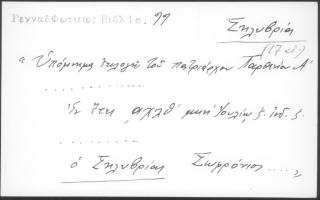 Γενναδφωτειος Βιβλ 1ο. 99
Σηλυβρία
(17 αι)
" Ὑπόμνημα ἐκλογῆς τοῦ πατριάρχου Παρθενίου Α'
..............
Ἐν ἔτει ͵αχλθ' μηνὶ Ἰουλίῳ ζ. ἰνδ. ζ.
..............
ὁ Σηλυβρίας Σωφρόνιος ....."